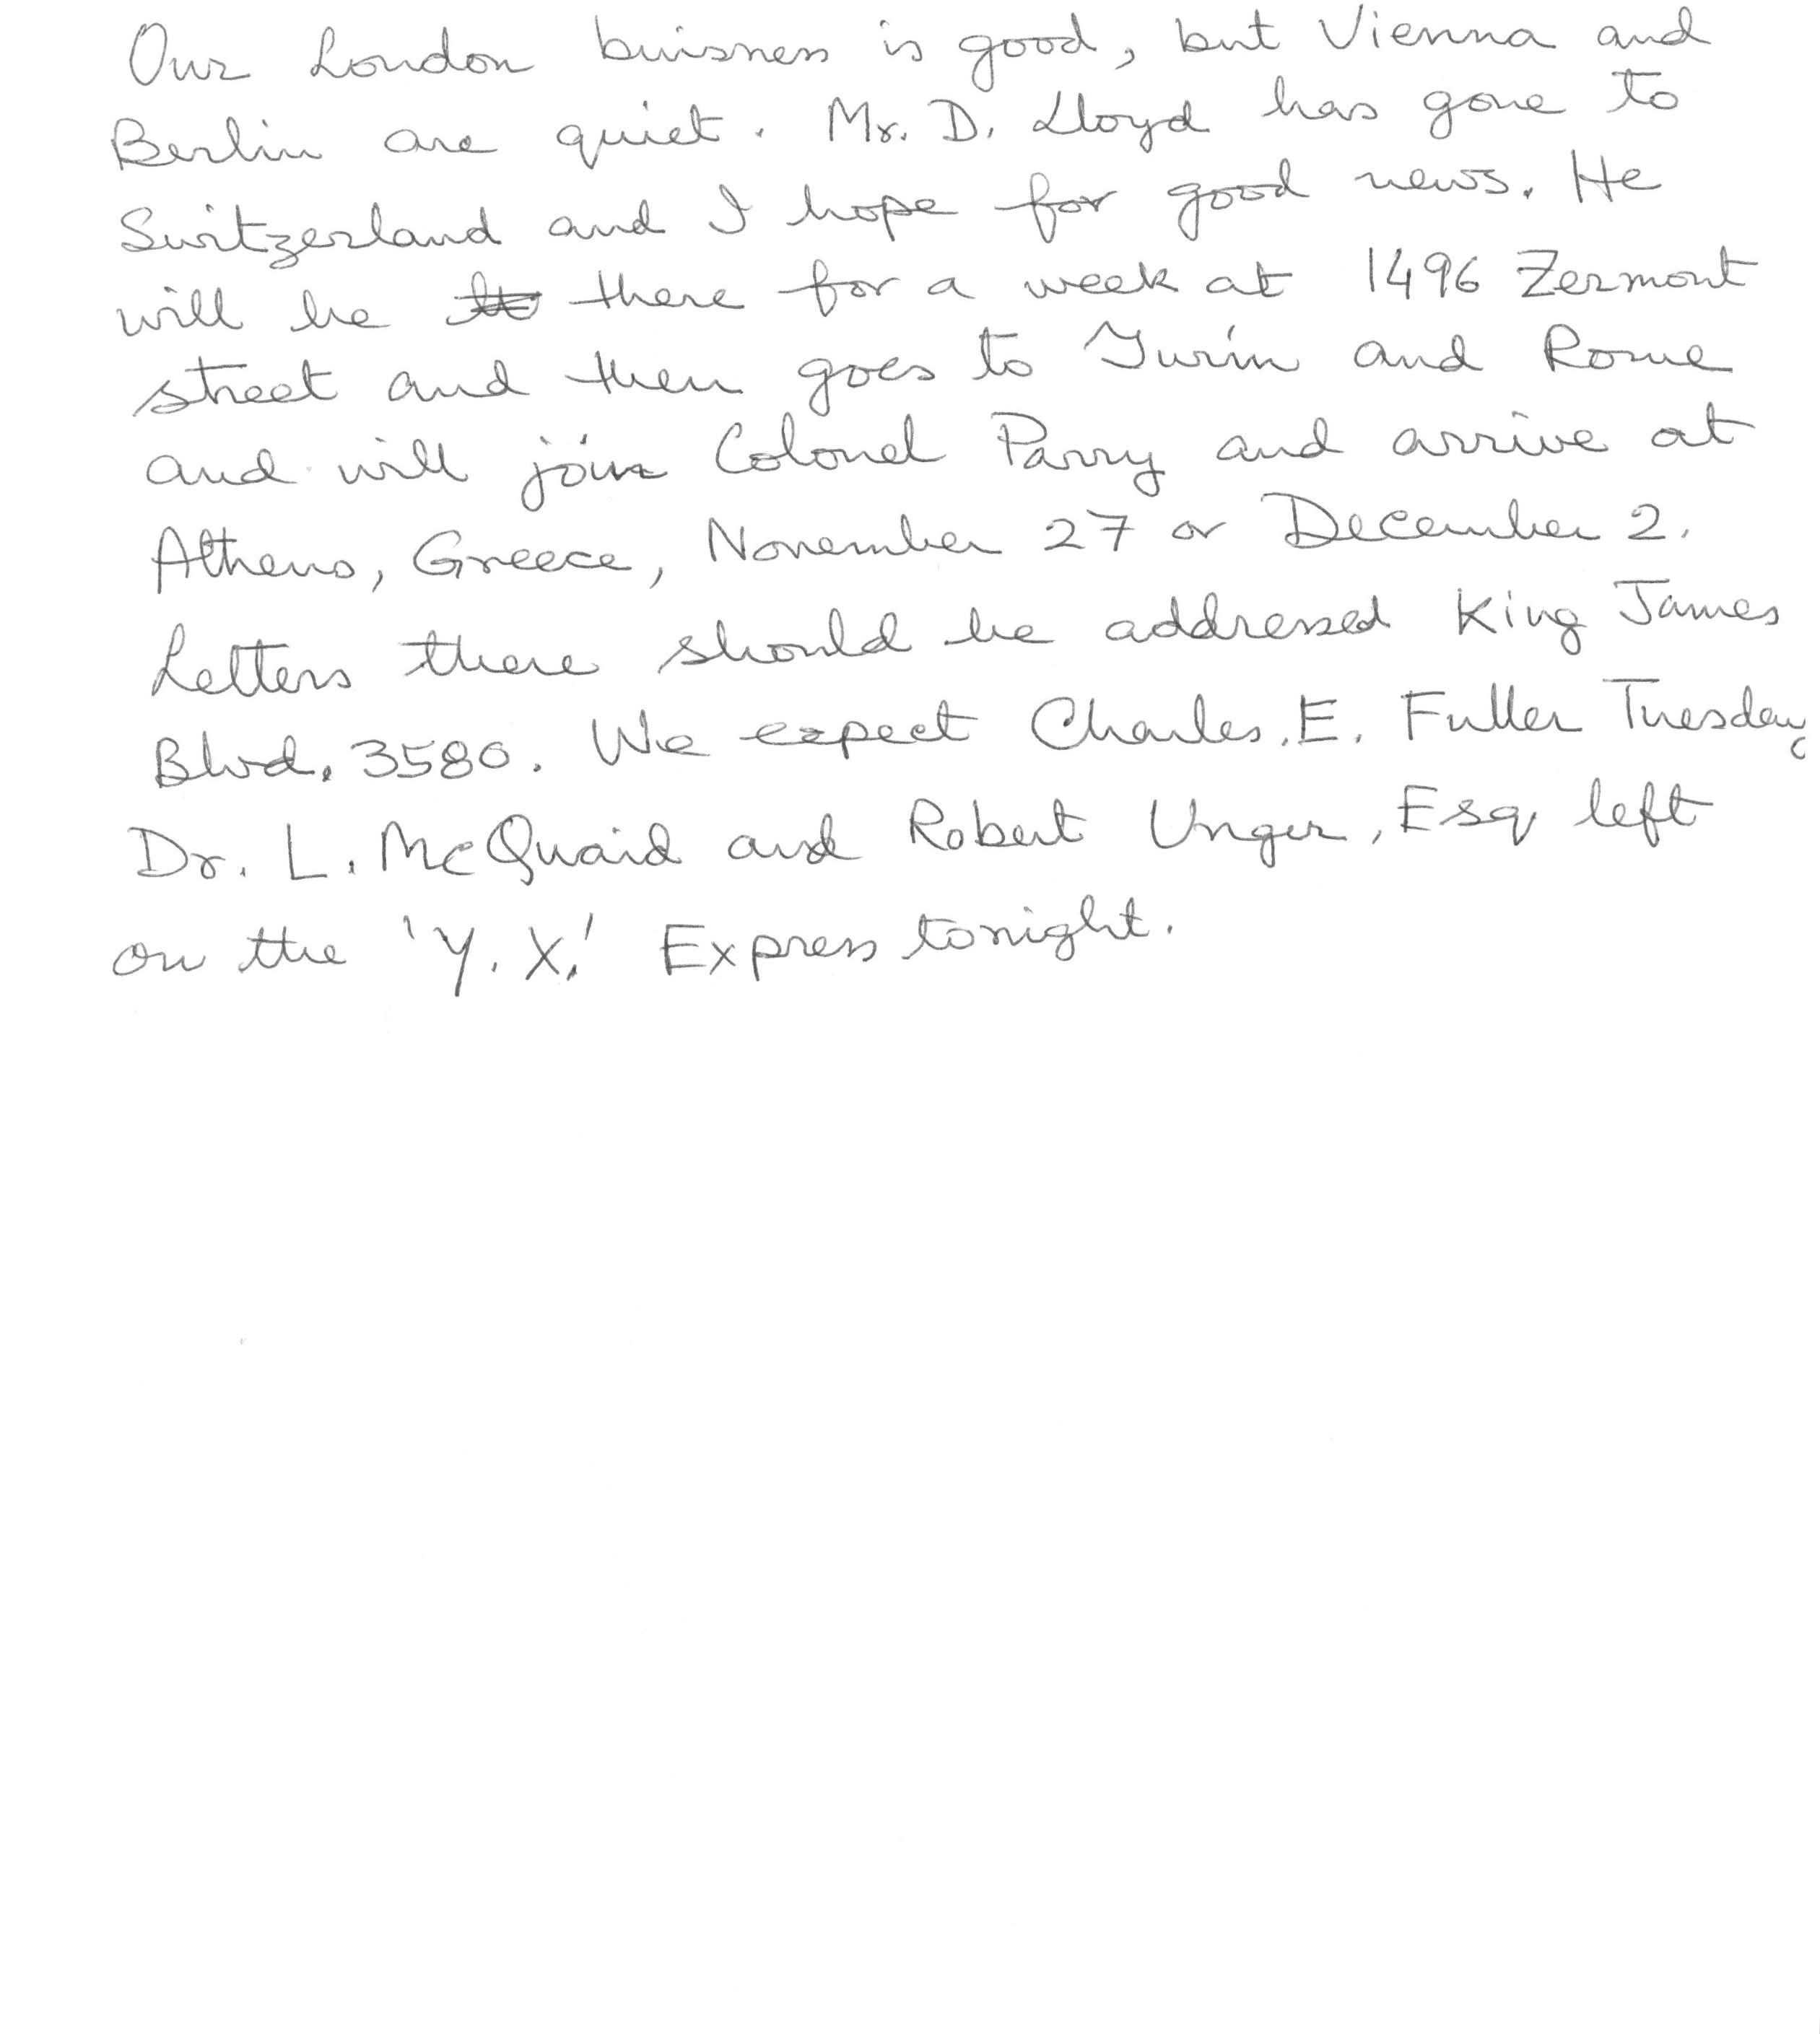 Our London buisness is good, but Vienna and
Berlin are quiet. Mr. D. Lloyd has gone to
Switzerland and I hope for good news. He
will be there for a week at 1496 Zermont
street and then goes to Turin and Rome
and will join Colonel Parry and arrive at
Athens, Greece, November 27 or December 2.
Letters there should be addressed King James
Blvd. 3580. We expect Charles. E. Fuller Tuesday
Dr. L. McQuaid and Robert Unger, Esq left
on the 'Y. X.' Express tonight.